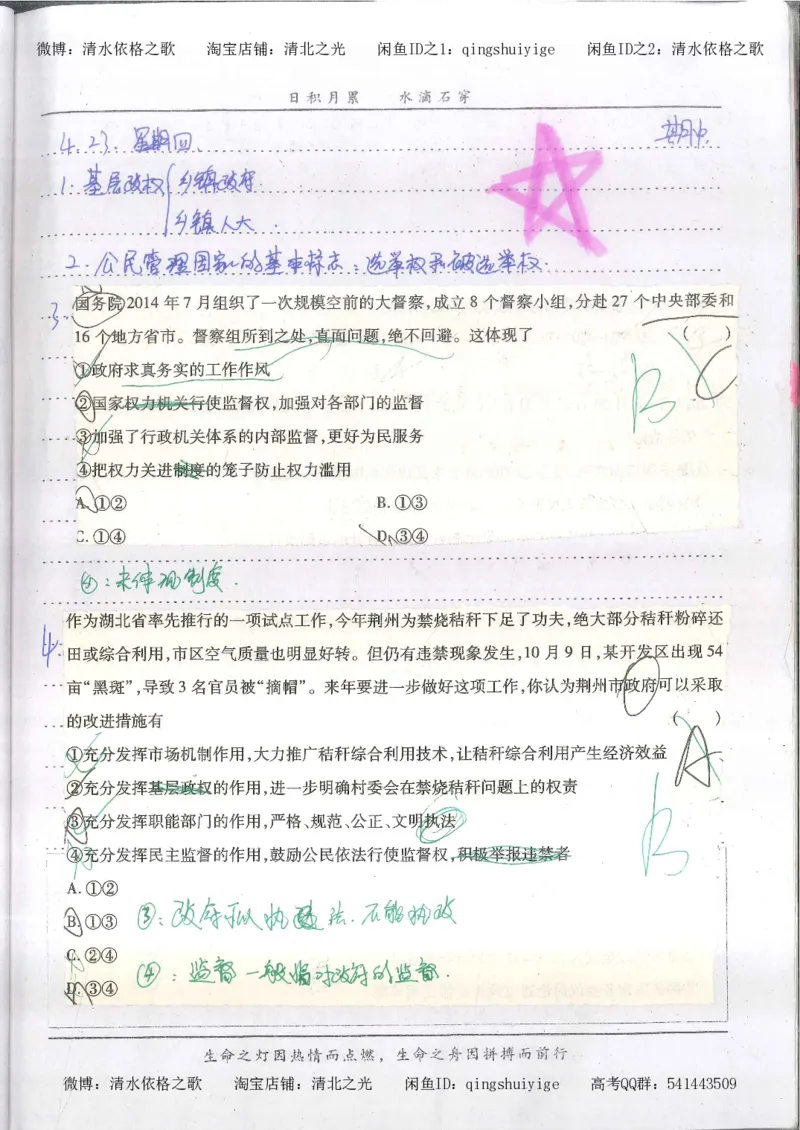 微博：清水依格之歌 淘宝店铺：清北之光 闲鱼ID之1：qingshuiyige 闲鱼ID之2：清水依格之歌
日积月累 水滴石穿
4.23. 星期四 期中
1. 基层政权 乡镇政府
乡镇人大
2. 公民管理国家的基本标志：选举权和被选举权.
3.
国务院2014年7月组织了一次规模空前的大督察,成立8个督察小组,分赴27个中央部委和
16个地方省市。督察组所到之处,直面问题,绝不回避。这体现了 ( )
C
①政府求真务实的工作作风
B
②国家权力机关行使监督权,加强对各部门的监督
③加强了行政机关体系的内部监督,更好为民服务
④把权力关进制度的笼子防止权力滥用
A.①② B.①③
C.①④ D.③④
④：未体现制度.
4.
作为湖北省率先推行的一项试点工作,今年荆州为禁烧秸秆下足了功夫,绝大部分秸秆粉碎还
田或综合利用,市区空气质量也明显好转。但仍有违禁现象发生,10月9日,某开发区出现54
亩“黑斑”,导致3名官员被“摘帽”。来年要进一步做好这项工作,你认为荆州市政府可以采取
的改进措施有 ( )
A
①充分发挥市场机制作用,大力推广秸秆综合利用技术,让秸秆综合利用产生经济效益
②充分发挥基层政权的作用,进一步明确村委会在禁烧秸秆问题上的权责
③充分发挥职能部门的作用,严格、规范、公正、文明执法
B
④充分发挥民主监督的作用,鼓励公民依法行使监督权,积极举报违禁者
A.①②
B.①③ ③：政府 法.不能执政
C.②④
④：监督一般指对政府的监督.
D.③④
生命之灯因热情而点燃，生命之舟因拼搏而前行
微博：清水依格之歌 淘宝店铺：清北之光 闲鱼ID：qingshuiyige 高考QQ群：541443509